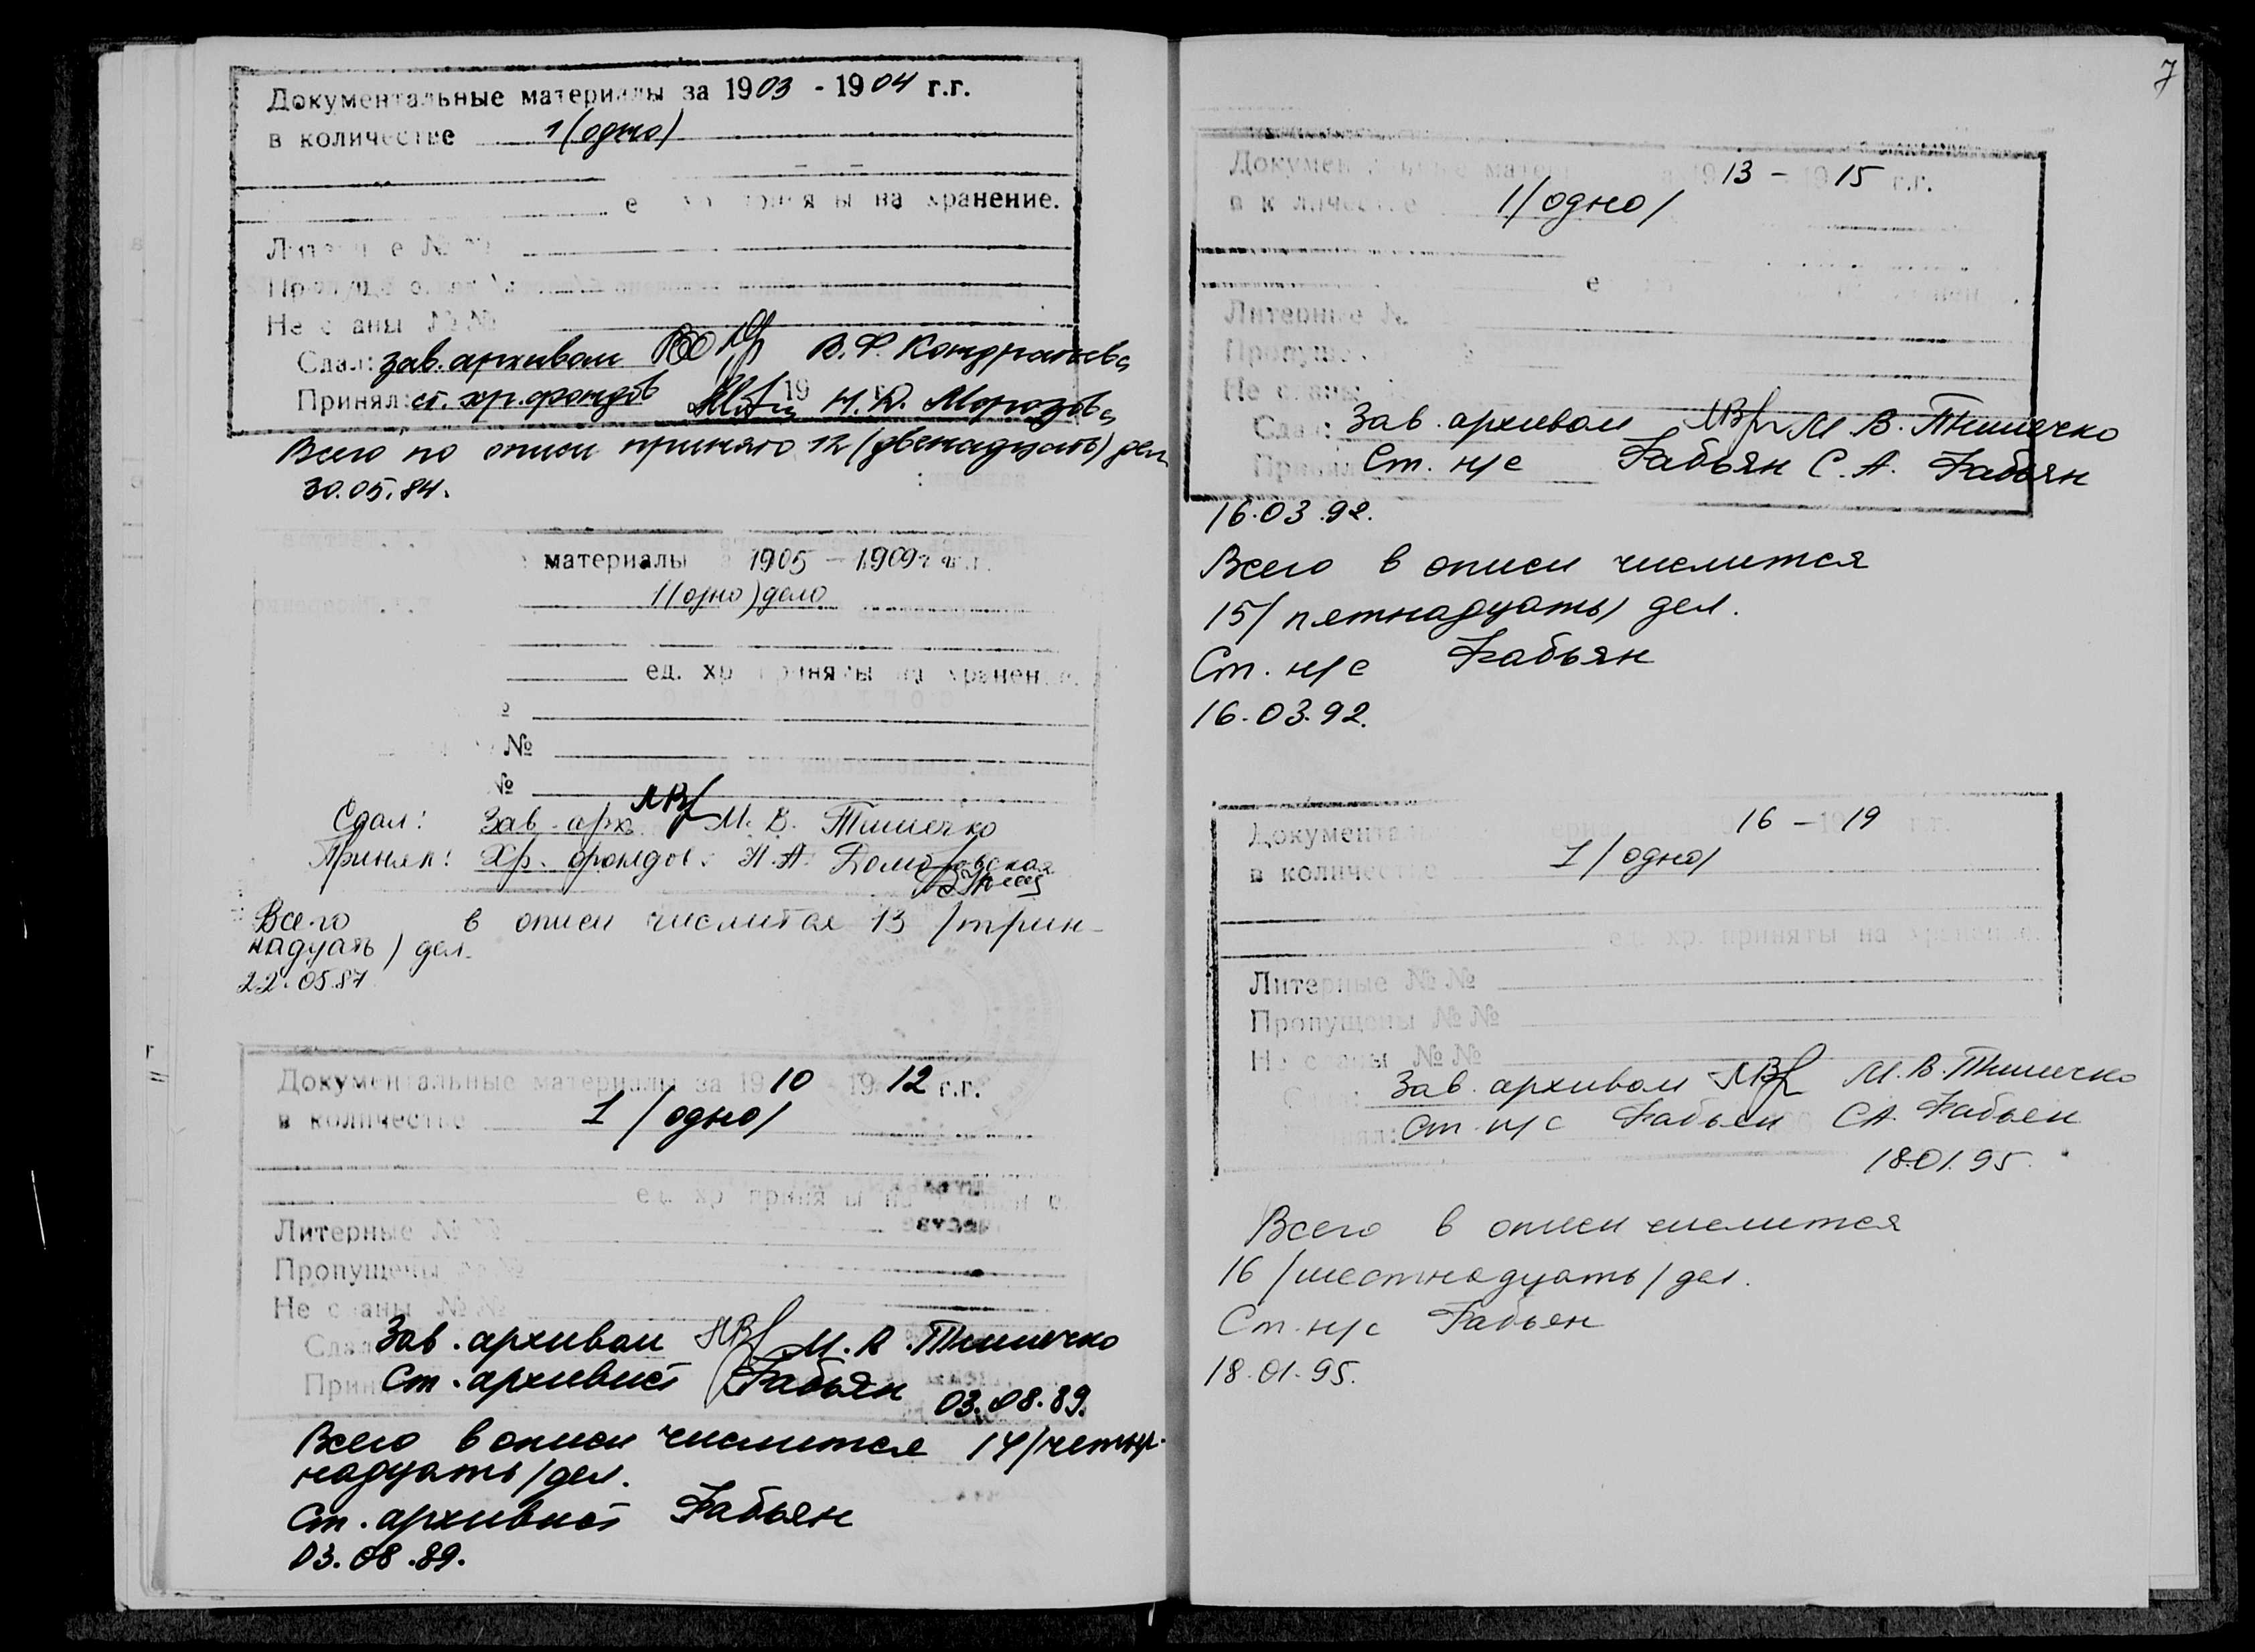 Документальные материалы за 1903 - 1904 г.г.
в количестве 1 (одно)
приняты на хранение.
Литерные №№
Пропущены
Не сданы №№
Сдал: зав. архивом В.Ф. Кондратьева
Принял: ст. хр. фондов 19 г. Н.Д. Морозова
Всего по описи принято 12 (двенадцать) дел
30.05.84.
материалы 1905 - 1909 г.г.
1 (одно) дело
ед. хр. приняты на хранение.
№
№
№
Сдал: Зав. арх. М. В. Тимечко
Принял: Хр. фондов Н. А.
Всего в описи числится 13 /трин-
надцать/ дел.
22.05.87
Документальные материалы за 1910 - 1912 г.г.
в количестве 1 /одно/
ед. хр. приняты на хранение.
Литерные №№
Пропущены №№
Не сданы №№
Сдал Зав. архивом М. В. Тимечко
Принял Ст. архивист Фабьян 03.08.89.
Всего в описи числится 14 /четыр-
надцать/ дел.
Ст. архивист Фабьян
03.08.89.
7
Документальные материалы за 1913 - 1915 г.г.
в количестве 1 /одно/
Литерные №
Пропущены
Не сданы
Сдал: Зав. архивом М. В. Тимечко
Принял Ст. н/с Фабьян С. А. Фабьян
16.03.92.
Всего в описи числится
15 /пятнадцать/ дел.
Ст. н/с Фабьян
16.03.92.
Документальные материалы 1916 - 1919 г.г.
в количестве 1 /одно/
ед. хр. приняты на хранение.
Литерные №№
Пропущены №№
Не сданы №№
Сдал: Зав. архивом М. В. Тимечко
Принял: Ст. н/с Фабьян С.А. Фабьян
18.01.95.
Всего в описи числится
16 /шестнадцать/ дел.
Ст. н/с Фабьян
18.01.95.